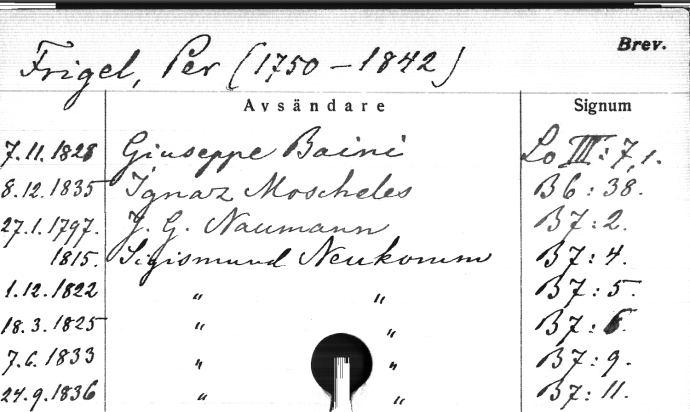 Brev.
Frigel, Per (1750–1842)
Avsändare Signum
7.11.1828 Giuseppe Baini Lo III:7,1.
8.12.1835 Ignaz Moscheles B6:38.
27.1.1797. J. G. Naumann B7:2.
1815. Sigismund Neukomm B7:4.
1.12.1822 " " B7:5.
18.3.1825 " " B7:6.
7.6.1833 " " B7:9.
24.9.1836 " " B7:11.